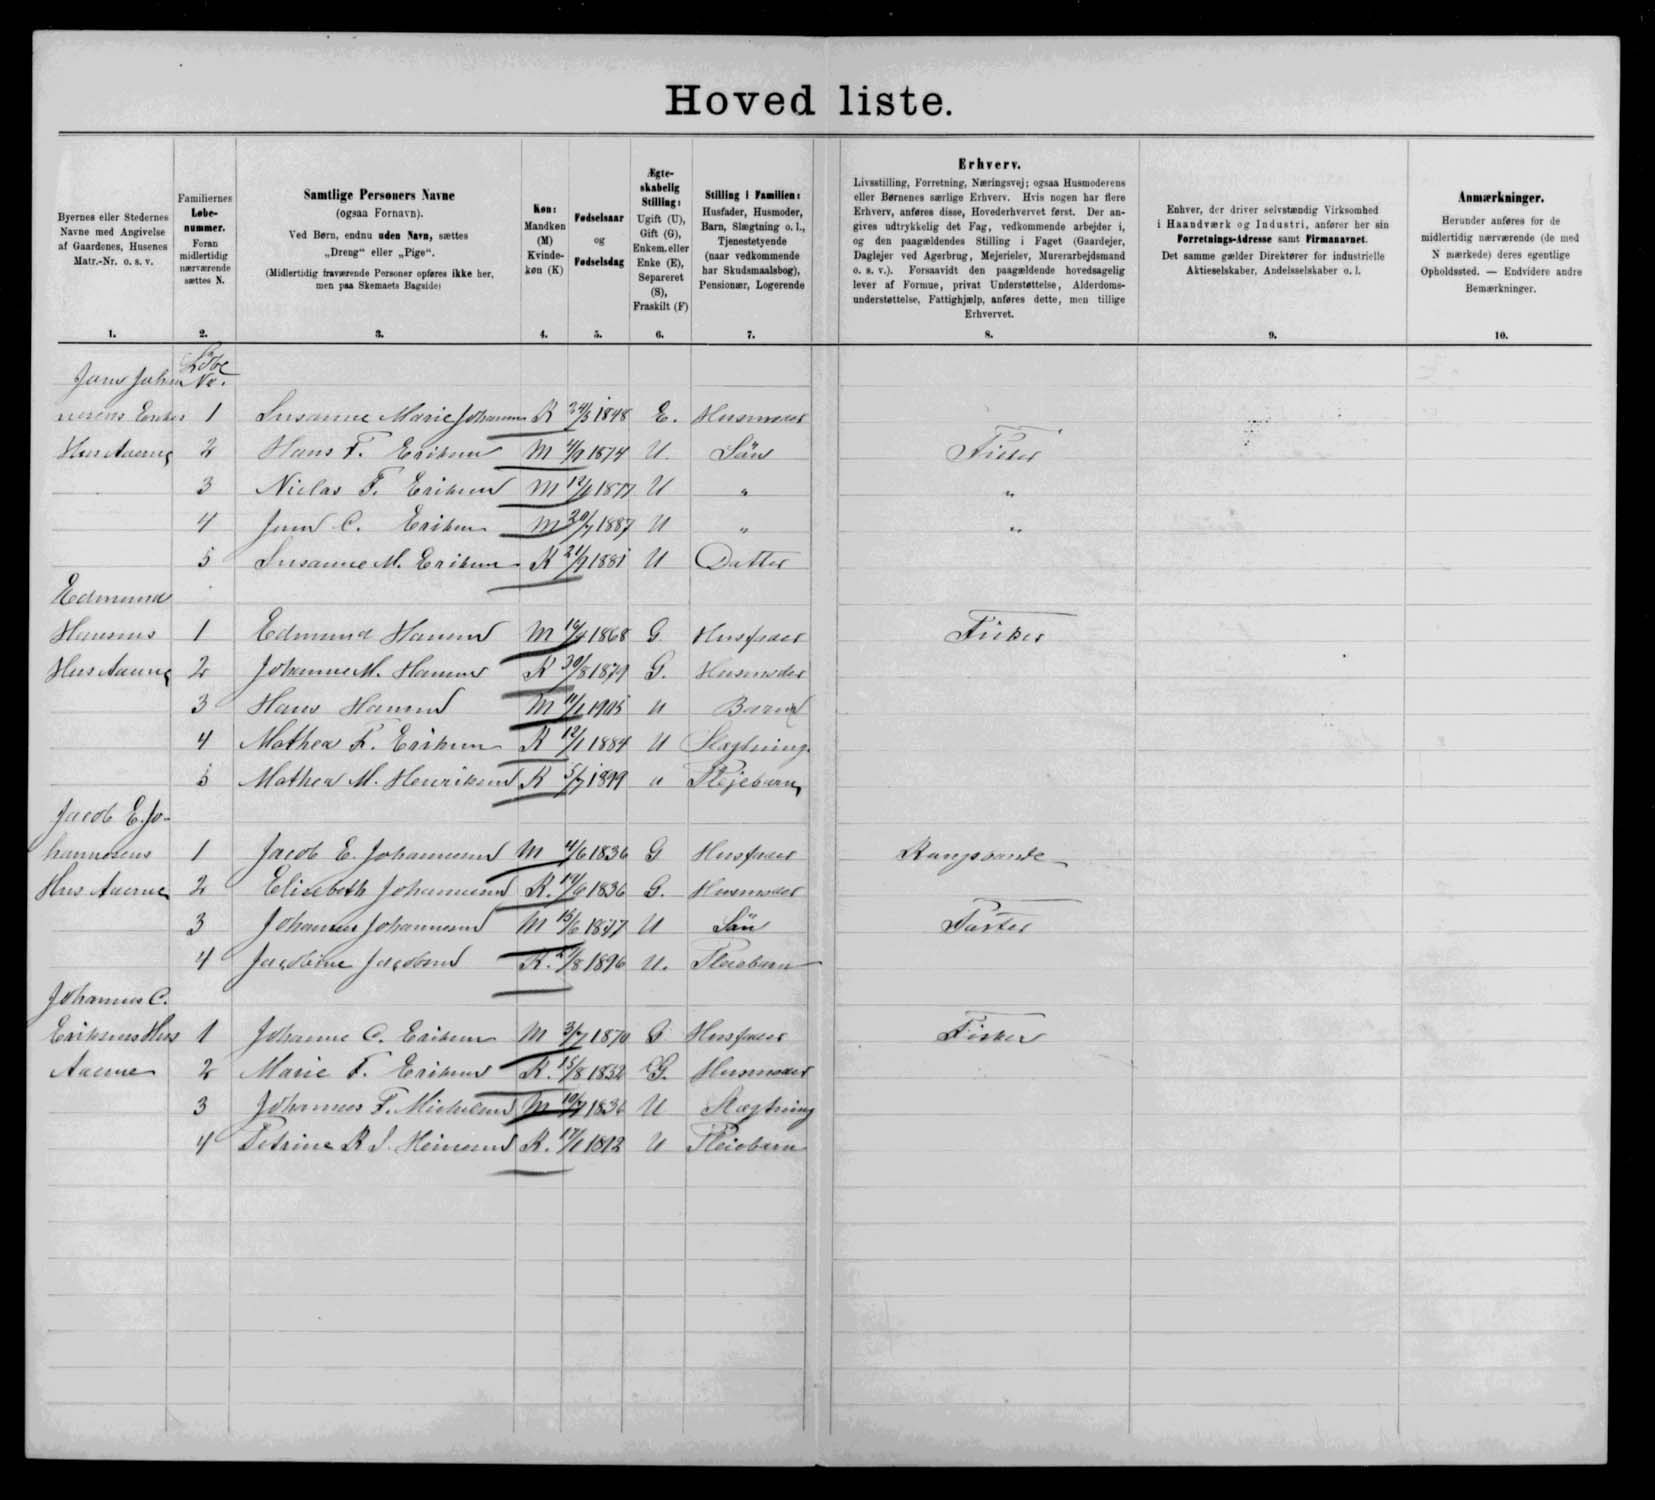 Hoved liste.
Byernes eller Stedernes Navne med Angivelse af Gaardenes, Husenes Matr.-Nr. o. s. v.
Familiernes Løbenummer. Foran midlertidig nærværende sættes N.
Samtlige Personers Navne
(ogsaa Fornavn).
Ved Børn, endnu uden Navn, sættes
„Dreng“ eller „Pige“.
(Midlertidig fraværende Personer opføres ikke her,
men paa Skemaets Bagside)
Køn: Mandkøn (M) Kvindekøn (K)
Fødselsaar og Fødselsdag
Ægteskabelig Stilling: Ugift (U), Gift (G), Enkem. eller Enke (E), Separeret (S), Fraskilt (F)
Stilling i Familien: Husfader, Husmoder, Barn, Slægtning o. l., Tjenestetyende (naar vedkommende har Skudsmaalsbog), Pensionær, Logerende
Erhverv.
Livsstilling, Forretning, Næringsvej; ogsaa Husmoderens
eller Børnenes særlige Erhverv. Hvis nogen har flere
Erhverv, anføres disse, Hovederhvervet først. Der an-
gives udtrykkelig det Fag, vedkommende arbejder i,
og den paagældendes Stilling i Faget (Gaardejer,
Daglejer ved Agerbrug, Mejerielev, Murerarbejdsmand
o. s. v.). Forsaavidt den paagældende hovedsagelig
lever af Formue, privat Understøttelse, Alderdoms-
understøttelse, Fattighjælp, anføres dette, men tillige
Erhvervet.
Enhver, der driver selvstændig Virksomhed
i Haandværk og Industri, anfører her sin
Forretnings-Adresse samt Firmanavnet.
Det samme gælder Direktører for industrielle
Aktieselskaber, Andelsselskaber o. l.
Anmærkninger.
Herunder anføres for de
midlertidig nærværende (de med
N mærkede) deres egentlige
Opholdssted. — Endvidere andre
Bemærkninger.
1. 2. 3. 4. 5. 6. 7. 8. 9. 10.
Løbe No.
1 Susanne Marie K 24/3 1848 E. Husmoder
2 Hans F. Eriksen M 1874 U. Sön Fisker
3 Niclas F. Eriksen M 1877 U " "
4 C. Eriksen M 1887 U " "
5 Susanne M. Eriksen K 21/9 1881 U Datter
Edmund
Hansens 1 Edmund Hansen M 1868 G. Husfader Fisker
Hus 2 Johanne M. Hansen K 30/8 1879 G. Husmoder
3 Hans Hansen M 1905 U Barn
4 Mathea F. Eriksen K 12/1 1884 U Slægtning
5 Mathea M. Henriksen K 5/7 1899 U Plejebarn
Jacob E. Jo-
hannesens 1 Jacob E. Johannesen M 1836 G Husfader
Hus 2 Elisabeth Johannesen K. 1836 G. Husmoder
3 Johannes Johannesen M 15/6 1877 U Sön Fisker
4 Jacobine Jacobsen K. 1896 U. Pleiebarn
Johannes C.
Eriksens Hus 1 C. Eriksen M 3/7 1870 G Husfader Fisker
2 Marie F. Eriksen K. 15/8 G. Husmoder
3 Johannes F. Michelsen M 1836 U Slægtning
4 Petrine K. 17/1 U Pleiebarn